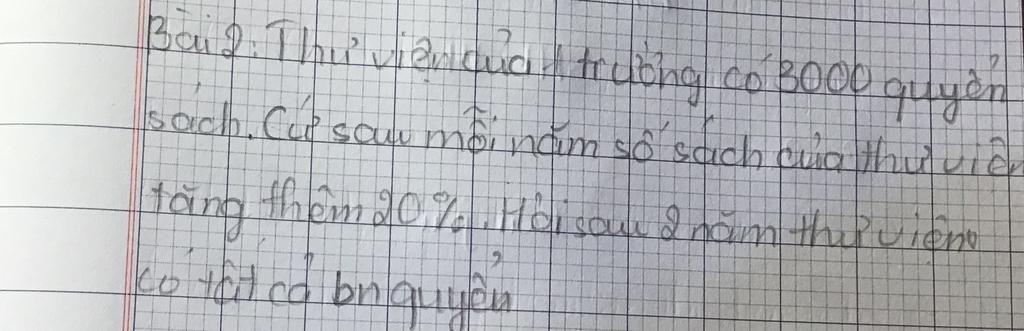 Bài 2: Thư viện của 1 trường có 3000 quyển
sách. Cứ sau mỗi năm số sách của thư viện
tăng thêm 20%. Hỏi sau 2 năm thư viện
có tất cả bn quyển